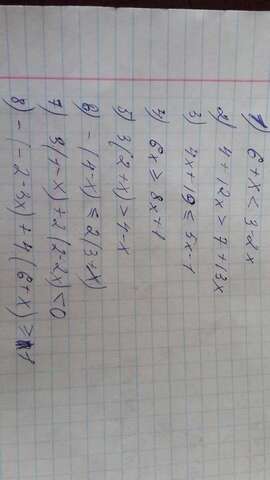 1) 6+x<3-2x
2) 4+12x>7+13x
3) 4x+19≤5x-1
4) 6x≥8x+1
5) 3(2+x)>4-x
6) -(4-x)≤2(3+x)
7) 3(1-x)+2(2-2x)<0
8) -(-2-3x)+4(6+x)≥1